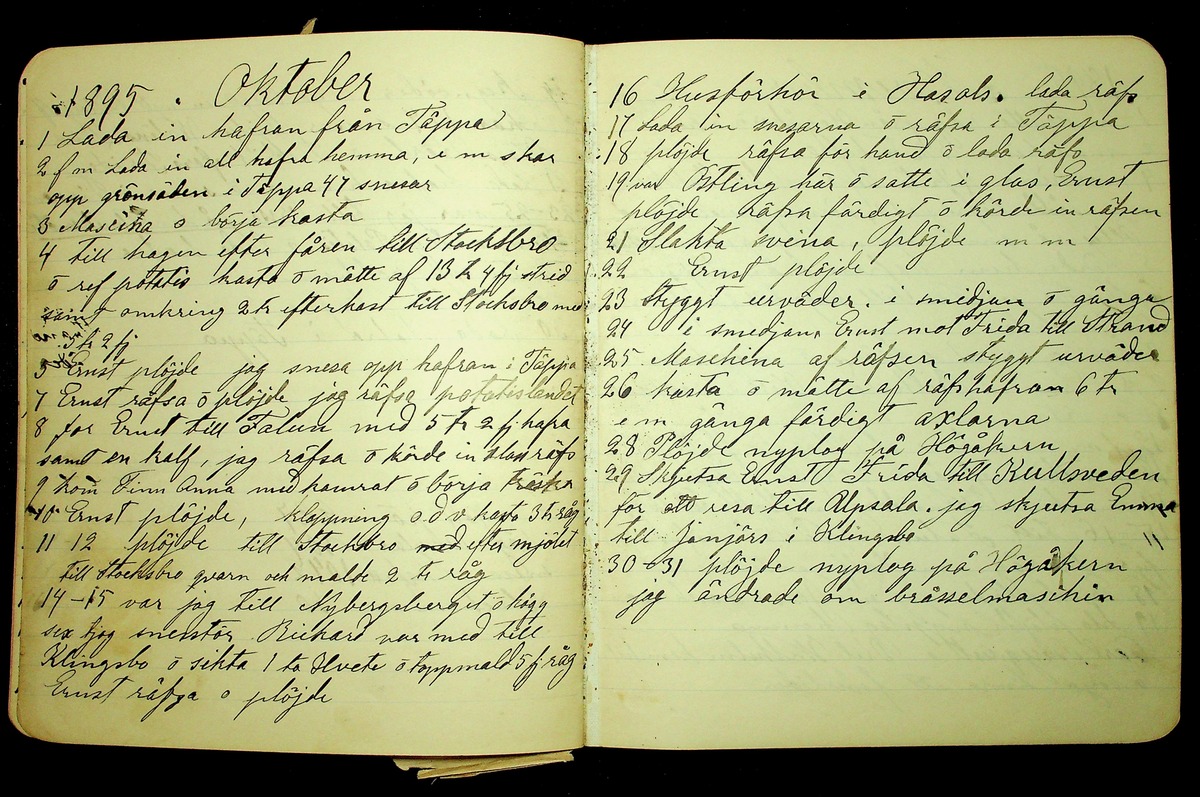 1895. Oktober
1 Lada in hafran från Täppa
2 f m Lada in all hafra hemma, e m skar
opp grönsäden i Täppa 47 snesar
3 Mascina o börja kasta
4 till hagen efter fåren till Stocksbro
ö ref potatis kasta ö mätte af 13 tr 4 fj strid
samt omkring 2 tr efterkast till Stocksbro med
3 tr 2 fj
5 Ernst plöjde jag snesa opp hafran i Täppa
7 Ernst räfsa ö plöjde jag räfsa potatislandet
8 for Ernst till Falun med 5 tr 2 fj hafra
samt en kalf, jag räfsa ö körde in räfs
9 kom Finn Anna med kamrat ö börja
10 Ernst plöjde, klappning o d v kasta 3 tr råg
11 12 plöjde till Stocksbro efter mjölet
till Stocksbro qvarn och malde 2 tr råg
14-15 var jag till Nybergsberget ö högg
sex tjog snesstör Richard var med till
Klingsbo ö sikta 1 ta Hvete ö toppmald 5 fj råg
Ernst räfsa o plöjde
16 Husförhör i Hasols. lada räfs
17 Lada in snesarna ö räfsa i Täppa
18 plöjde räfsa för hand ö lada räfs
19 var Östling här ö satte i glas, Ernst
plöjde räfsa färdigt ö körde in räfsen
21 Slakta svina, plöjde m m
22 Ernst plöjde
23 styggt urväder. i smedjan ö gänga
24 i smedjan, Ernst mot Frida till Strand
25 Maschina af räfsen styggt urväder
26 kasta ö mätte af räfshafran 6 tr
e m gänga färdigt axlarna
28 Plöjde nyplog på Högåkern
29 Skjutsa Ernst Frida till Kullsveden
för att resa till Upsala. jag skjutsa Emma
till Janjörs i Klingsbo
30-31 plöjde nyplog på Högåkern
jag ändrade om brässelmaschin